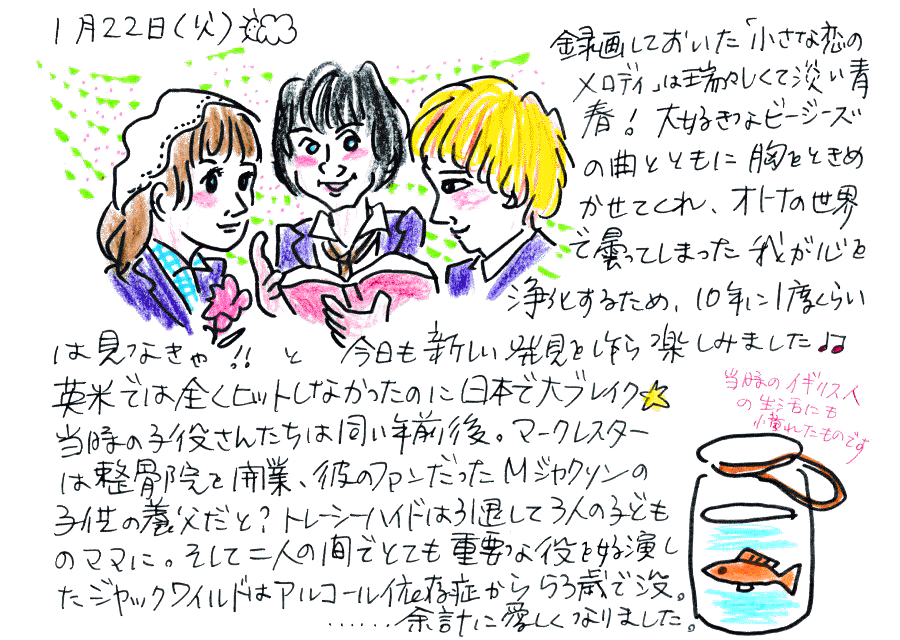 1月22日(火)
録画しておいた「小さな恋の
メロディ」は瑞々しくて淡い青
春! 大好きなビージーズ
の曲とともに胸をときめ
かせてくれ、オトナの世界
で曇ってしまった我が心を
浄化するため、10年に1度くらい
は見なきゃ!! と 今日も新しい発見を
楽しみました♪♫
英米では全くヒットしなかったのに日本で大ブレイク☆
当時の子役さんたちは同い年前後。マークレスター
は整骨院を開業、彼のファンだったMジャクソンの
子供の養父だと?トレーシーハイドは引退して3人の子ども
のママに。そして二人の間でとても重要な役を好演し
たジャックワイルドはアルコール依存症から53歳で没。
......余計に愛しくなりました。
当時のイギリス人
の生活にも
憧れたものです